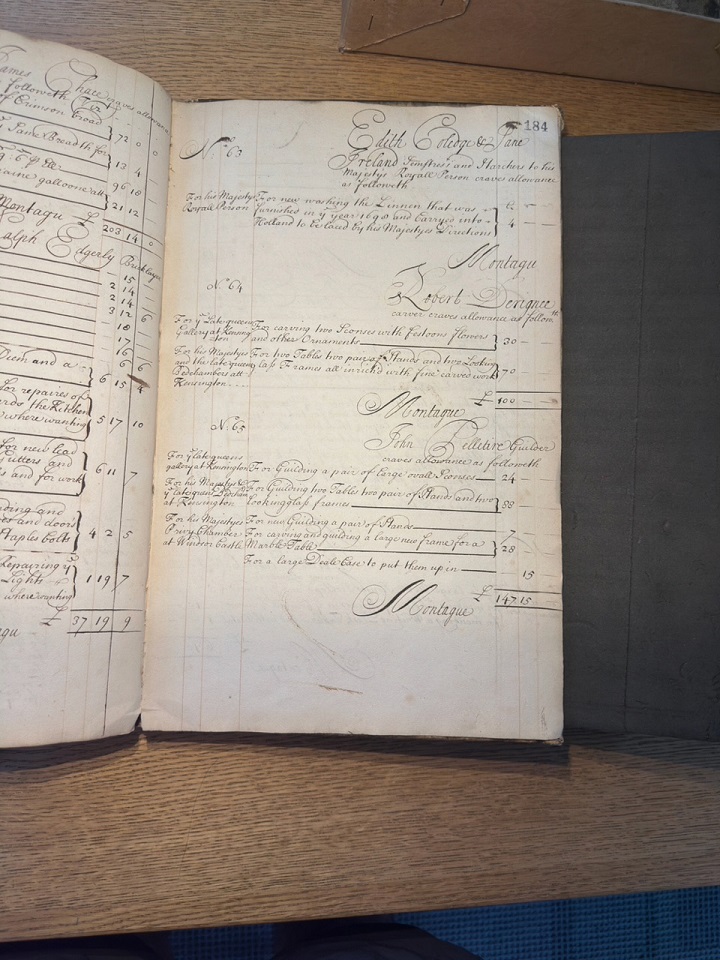 Chace craves allowance
followeth Viz
of Crimson broad
72 0 0
Same Breadth for
13 4 -
96 18
galloone att
21 12
Montagu £ 203 14 0
alph Edgerly Bricklayer
- 15 -
2 14 -
2 14 -
3 12 6
- 18
- 17
- 16
- 6 6
and a
6 15 4
for repaires of
the Kitchen
where wanting
5 17 10
for new lead
Gutters and
and for work
6 11 7
and
and doors
Staples bolts
4 2 5
Repairing y
Lights
where wanting
1 19 7
£ 37 19 9
184
No. 63
Edith Coledge & Jane
Ireland Semstress and Starchers to his
Majestys Royall Person craves allowance
as followeth
For his Majestys For new washing the Linnen that was
Royall Person furnishes in ye year 1698 and carryed into
Holland to be laced by his Majestyes Directions
4 - -
Montagu
No. 64
Robert Derignee
carver craves allowance as followth
For ye Late queens
Gallery at Kensing
ton
For carving two Sconses with festoons flowers
and other Ornaments
30 - -
For his Majestys For two Tables two paires of Stands and two Looking
and the late queens glass Frames all inrich'd with fine carved work
Bedchambers att
Kensington
70 - -
£ 100 - -
Montague
No. 65
John Pelletire Guilder
craves allowance as followeth
For ye late queens
gallery at Kensington For Guilding a pair of large ovall Sconses 24 -
For his Majestys For Guilding two Tables two pair of Stands and two
ye late queens Bedcham
at Kensington lookinglass frames
88 -
For his Majestys For new Guilding a pair of Stands 7 -
Privy Chamber For carving and guilding a large new frame for a
at Windsor Castle Marble Table
28 -
For a large Deale Case to put them up in 15
£ 147 15 -
Montague